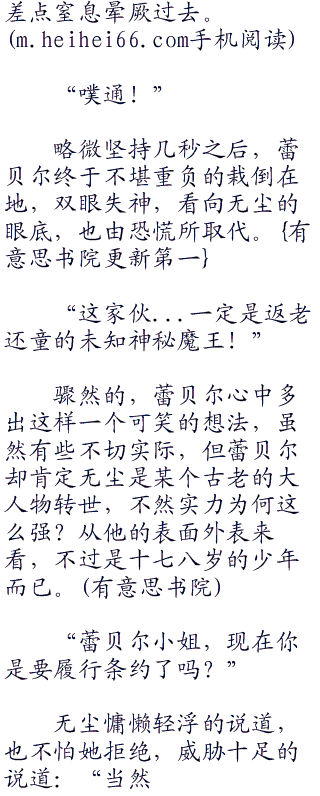 差点窒息晕厥过去。
(m.heihei66.com手机阅读)
“噗通！”
略微坚持几秒之后，蕾
贝尔终于不堪重负的栽倒在
地，双眼失神，看向无尘的
眼底，也由恐慌所取代。{有
意思书院更新第一}
“这家伙...一定是返老
还童的未知神秘魔王！”
骤然的，蕾贝尔心中多
出这样一个可笑的想法，虽
然有些不切实际，但蕾贝尔
却肯定无尘是某个古老的大
人物转世，不然实力为何这
么强？从他的表面外表来
看，不过是十七八岁的少年
而已。(有意思书院)
“蕾贝尔小姐，现在你
是要履行条约了吗？”
无尘慵懒轻浮的说道，
也不怕她拒绝，威胁十足的
说道：“当然